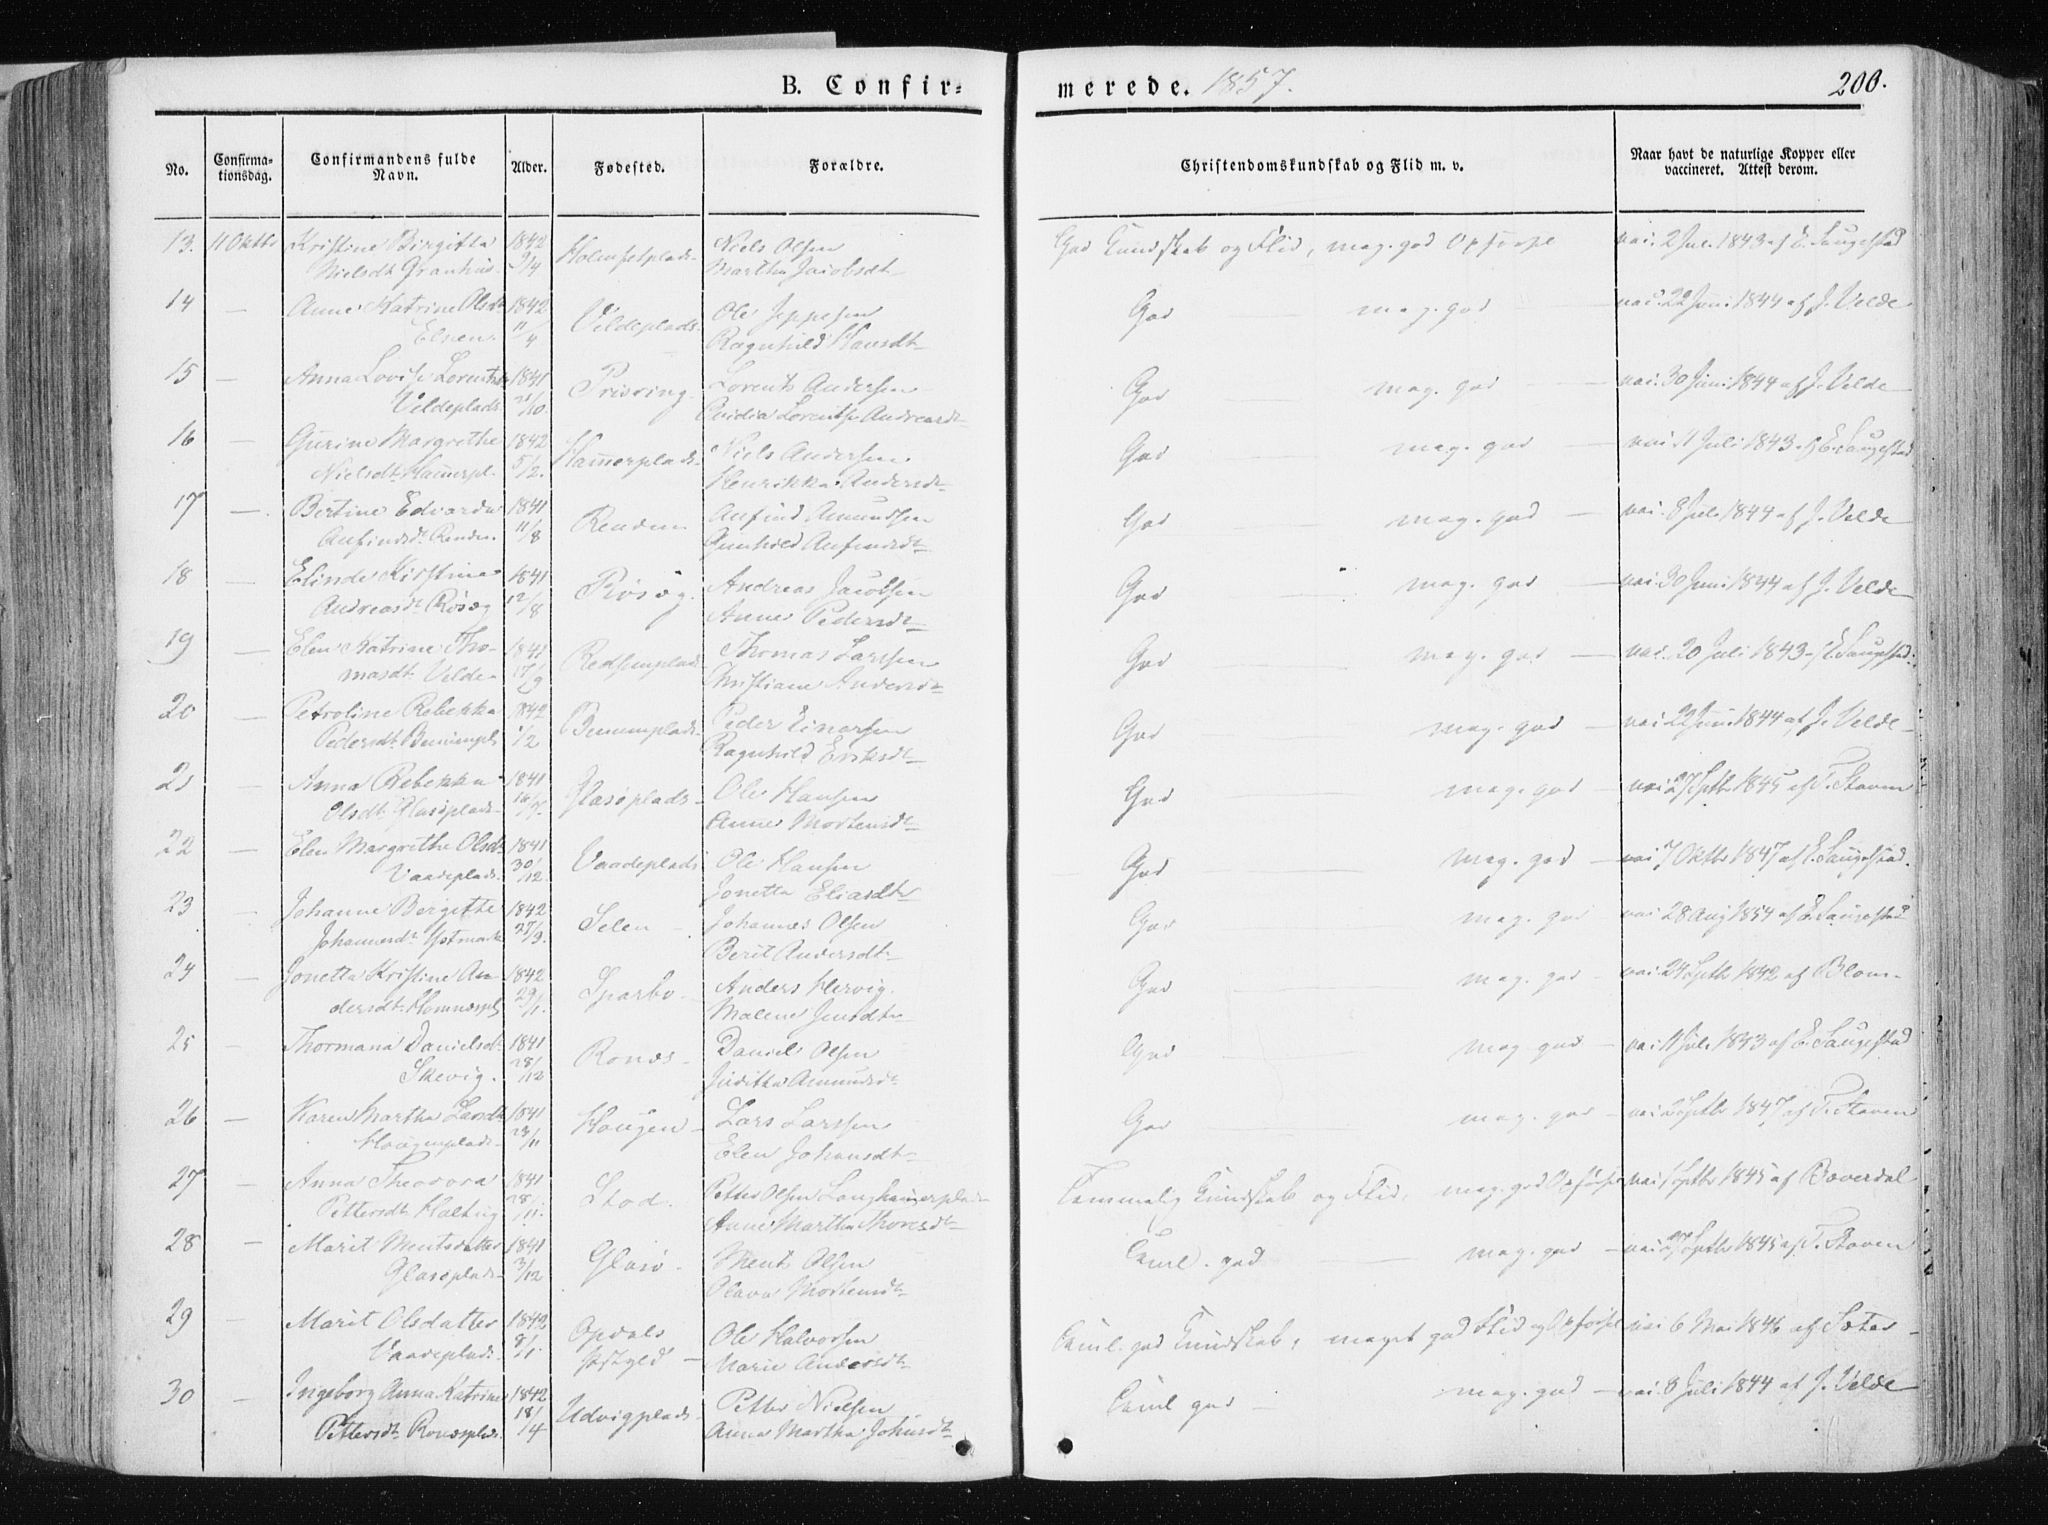 B. Confirmerede. 1857.
200.
No.
Confirmationsdag.
Confirmandens fulde Navn.
Alder.
Fødested.
Forældre.
Christendomskundskab og Flid m. v.
Naar havt de naturlige Kopper eller vaccineret. Attest derom.
13. 11 Oktbr Kristine Birgitta 1842 Holmsetplads Niels Olsen God Kundskab og Flid, meg. god Opførsel vac. 2 Juli 1843 af E. Saugestad
Nielsdt 9/4 Martha Jacobsdt
14 — Anne Katrine Olsdt 1842 Veldeplads Ole Jeppesen God — meg. god — vac. 22 Juni 1844 af J. Velde
11/4 Ragnhild Hansdt
15 — Anna Lovise 1841 Lorents Andersen God meg. god — vac. 30 Juni 1844 af J. Velde
Veldeplads 21/10. Lorentse Andreasdt
16 — Gurine Margrethe 1842 Hamerplads Niels Andersen God meg. god — vac. 11 Juli 1843 af E. Saugestad
Nielsdt Hamerpl. 5/2. Henrikka Andersdt
17 — Bertine Edvarda 1841 Anfind Amundsen God — meg. god — vac. 8 Juli 1844 af J. Velde
Anfindsdt 11/8 Gunhild Anfindsdt
18 — Elinde Kirstina 1841 Røsøg. Andreas Jacobsen God meg. god — vac. 30 Juni 1844 af J. Velde
Andreasdt Røsøg 12/8 Anne Pedersdt
19 — Elen Katrine Tho- 1841 Thomas Larssen God meg. god — vac. 20 Juli 1843 af E. Saugestad.
masdt Velde 17/9 Christiane Andersdt
20 — Petroline Rebekka 1842 Peder Einersen God meg. god — vac. 22 Juni 1844 af J. Velde
Pedersdt 1/2 Ragnhild Eriksdt
21 — Anna Rebekka 1841 Glasøplads Ole Hansen God meg. god vac. 27 Septbr 1845 af T. Staven
Olsdt Glasøplads Anne Mortensdt
22 — Elen Margrethe Olsdt 1841 Vaadeplads Ole Hansen God meg. god — vac. 7 Oktbr 1847 af E. Saugestad.
Vaadeplads. 30/12 Jonetta Eliasdt
23 Johanne Bergitte 1842 Selen Johannes Olsen God meg. god vac. 28 Aug 1854 af E. Saugestad
Johannesdt Ystmark 27/3. Berit Andersdt
24 — Jonetta Kristine An- 1842 Sparbo Anders Hervig. God meg. god vac. 24 Septbr 1842 af Blom
dersdt 29/1. Malene Jensdt
25 — Thormana Danielsdt 1841 Ronæs Daniel Olsen God meg. god vac. 11 Juli 1843 af E. Saugestad
Skevig. 28/12 Juditha Amundsdt
26 — Karen Martha Larsdt 1841 Haugen Lars Larssen God meg. god vac. Septbr 1847 af T. Staven
Haugenplads 23/11 Elen Johansdt
27 — Anna Theodora 1841 Stod. Petter Olsen Langhamerplads Temmelig Kundskab og Flid, meg. god Opførsel vac. Septbr 1845 af Bæverdal
Pettersdt 28/11. Anne Martha Thoresdt
28 — Marit Mentsdatter 1841 Glasø Ment Olsen Teml. god — meg. god — vac. Septbr 1845 af T. Staven
Glasøplads 3/12 Olava Mortensdt
29 — Marit Olsdatter 1842 Opdals Ole Halvorsen Teml. god Kundskab, meget god Flid og Opførsel vac. 6 Mai 1846 af Sæter
Vaadeplads. 8/1. Præstgjeld Marie Andersdt
30 — Ingeborg Anna Katrine 1842 Udvigplads Petter Nielsen Teml god — meg. god — vac. 8 Juli 1844 af J. Velde
Pettersdt Ronæsplads. 18/4 Anna Martha Johnsdt